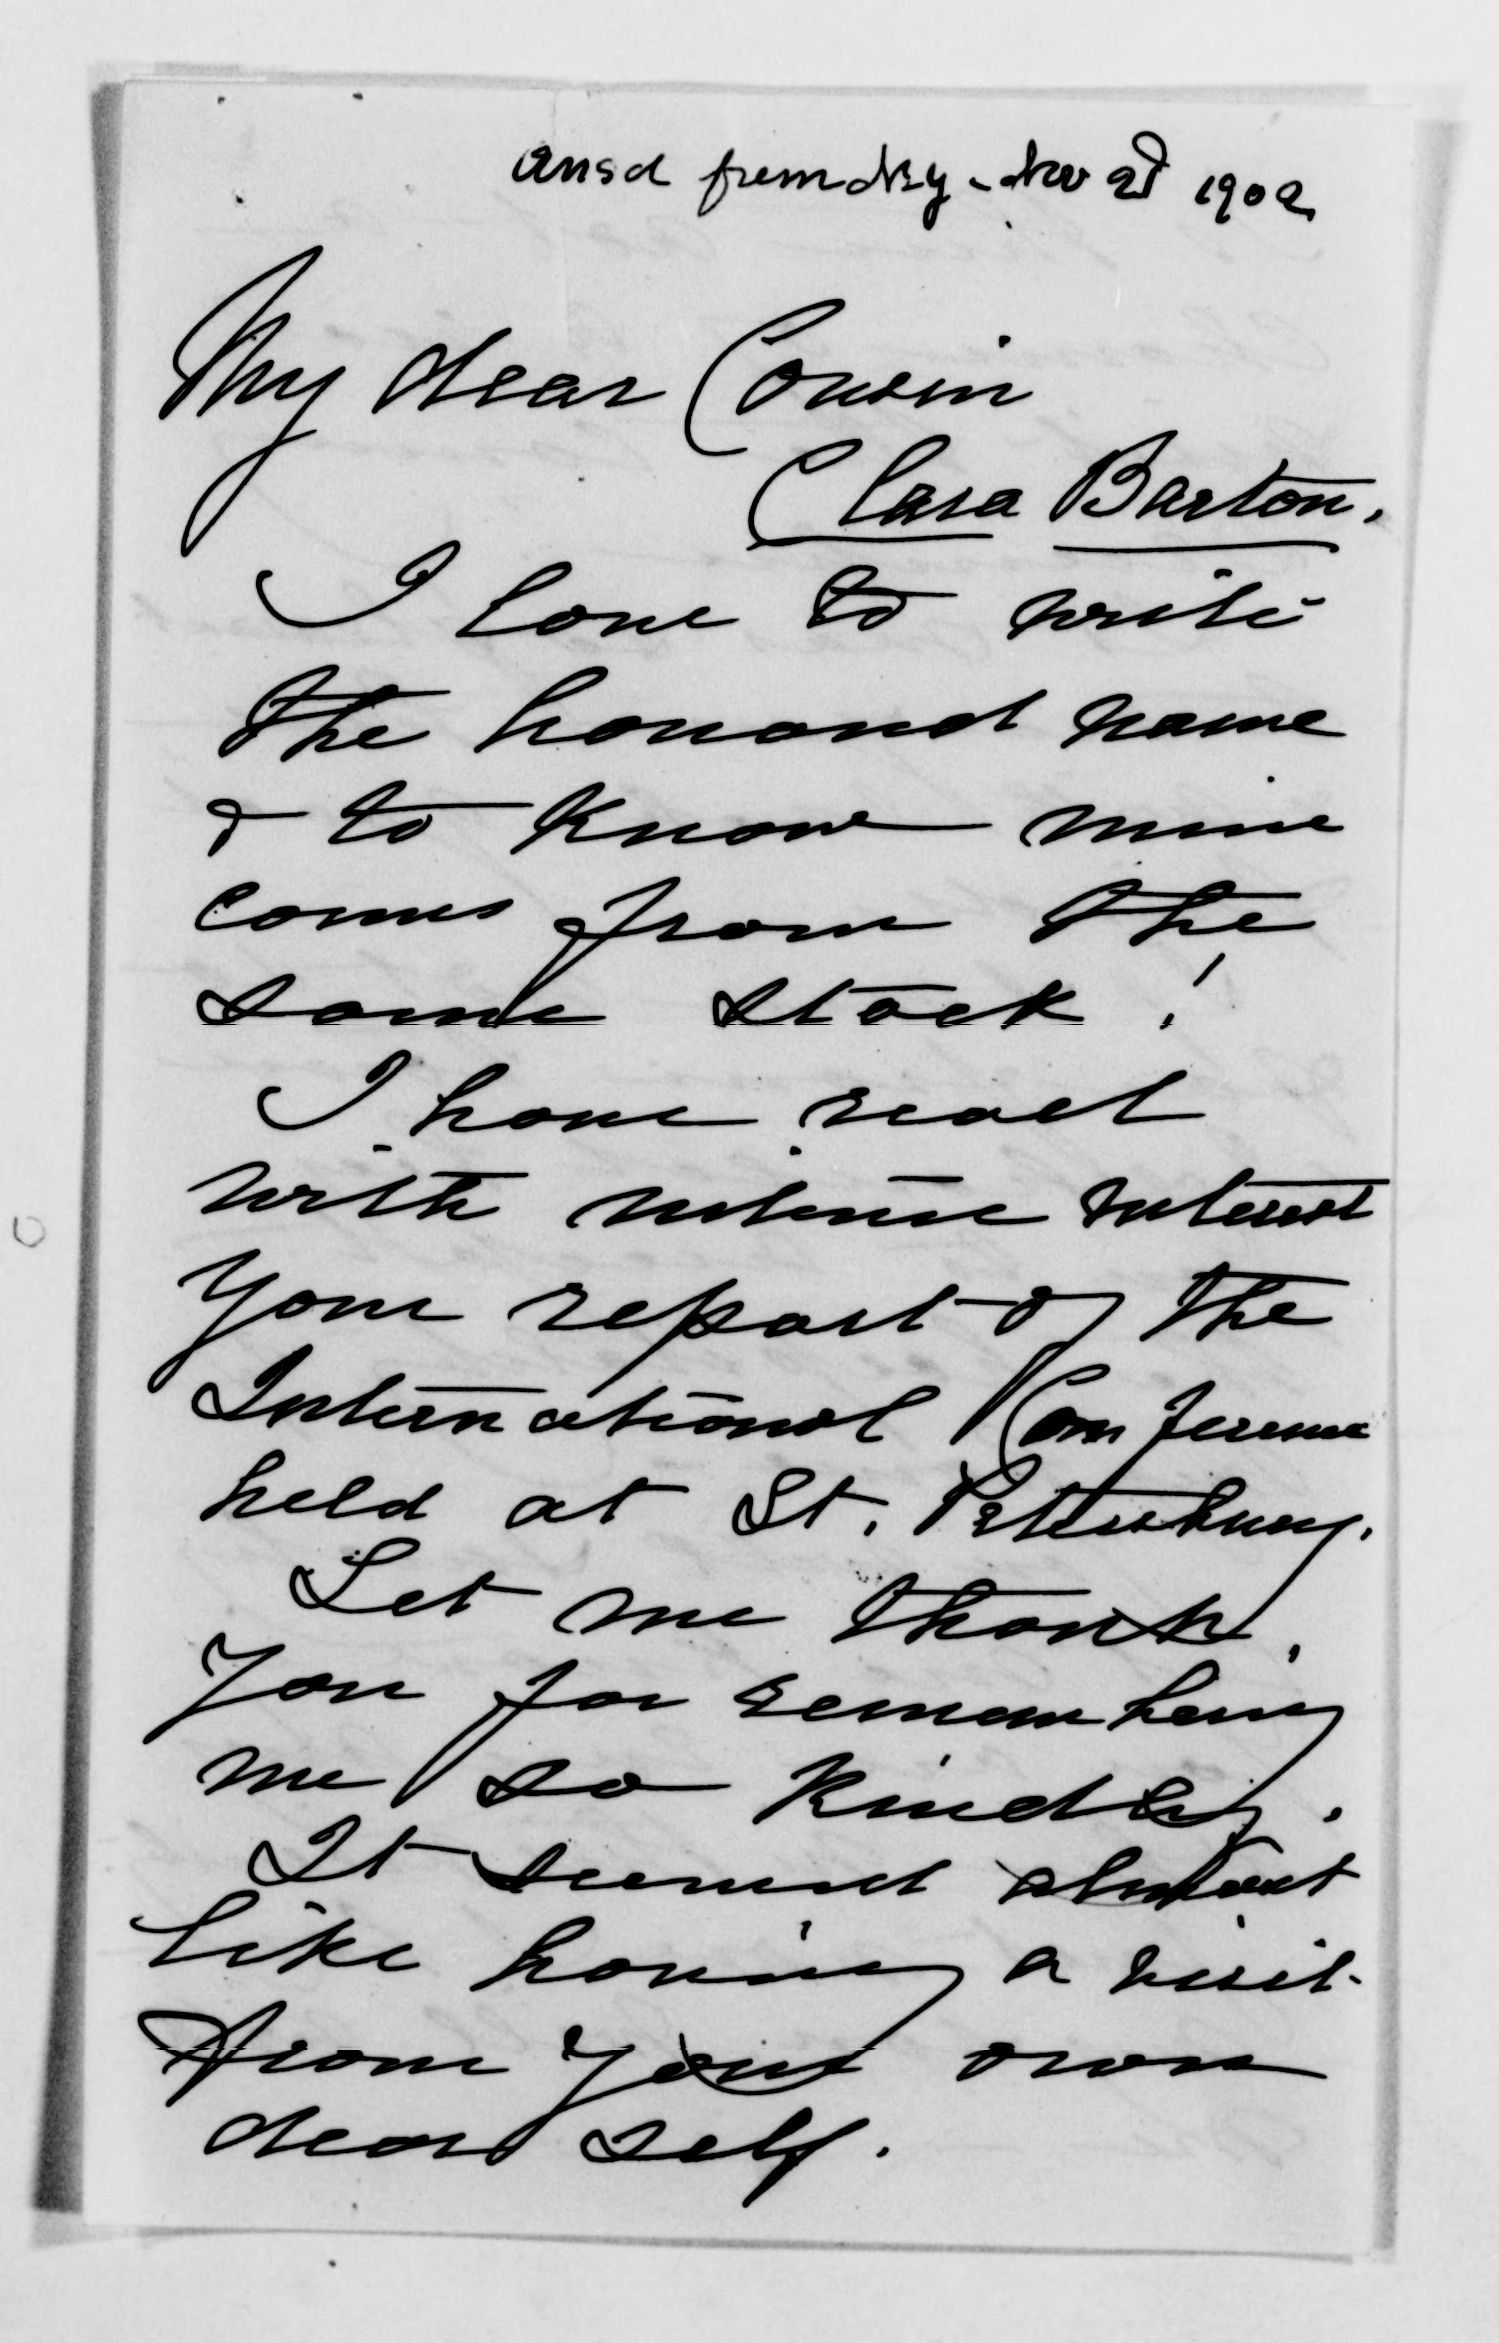 ansd from N.Y. - Nov 2d 1902
My dear Cousin
Clara Barton.
I love to write
the honored name
& to know mine
comes from the
same stock!
I have read
with intense interest
your report of the
International Conference
held at St. Petersburg.
Let me thank
you for remembering
me so kindly.
It seemed almost
like having a visit
from your own
dear self.